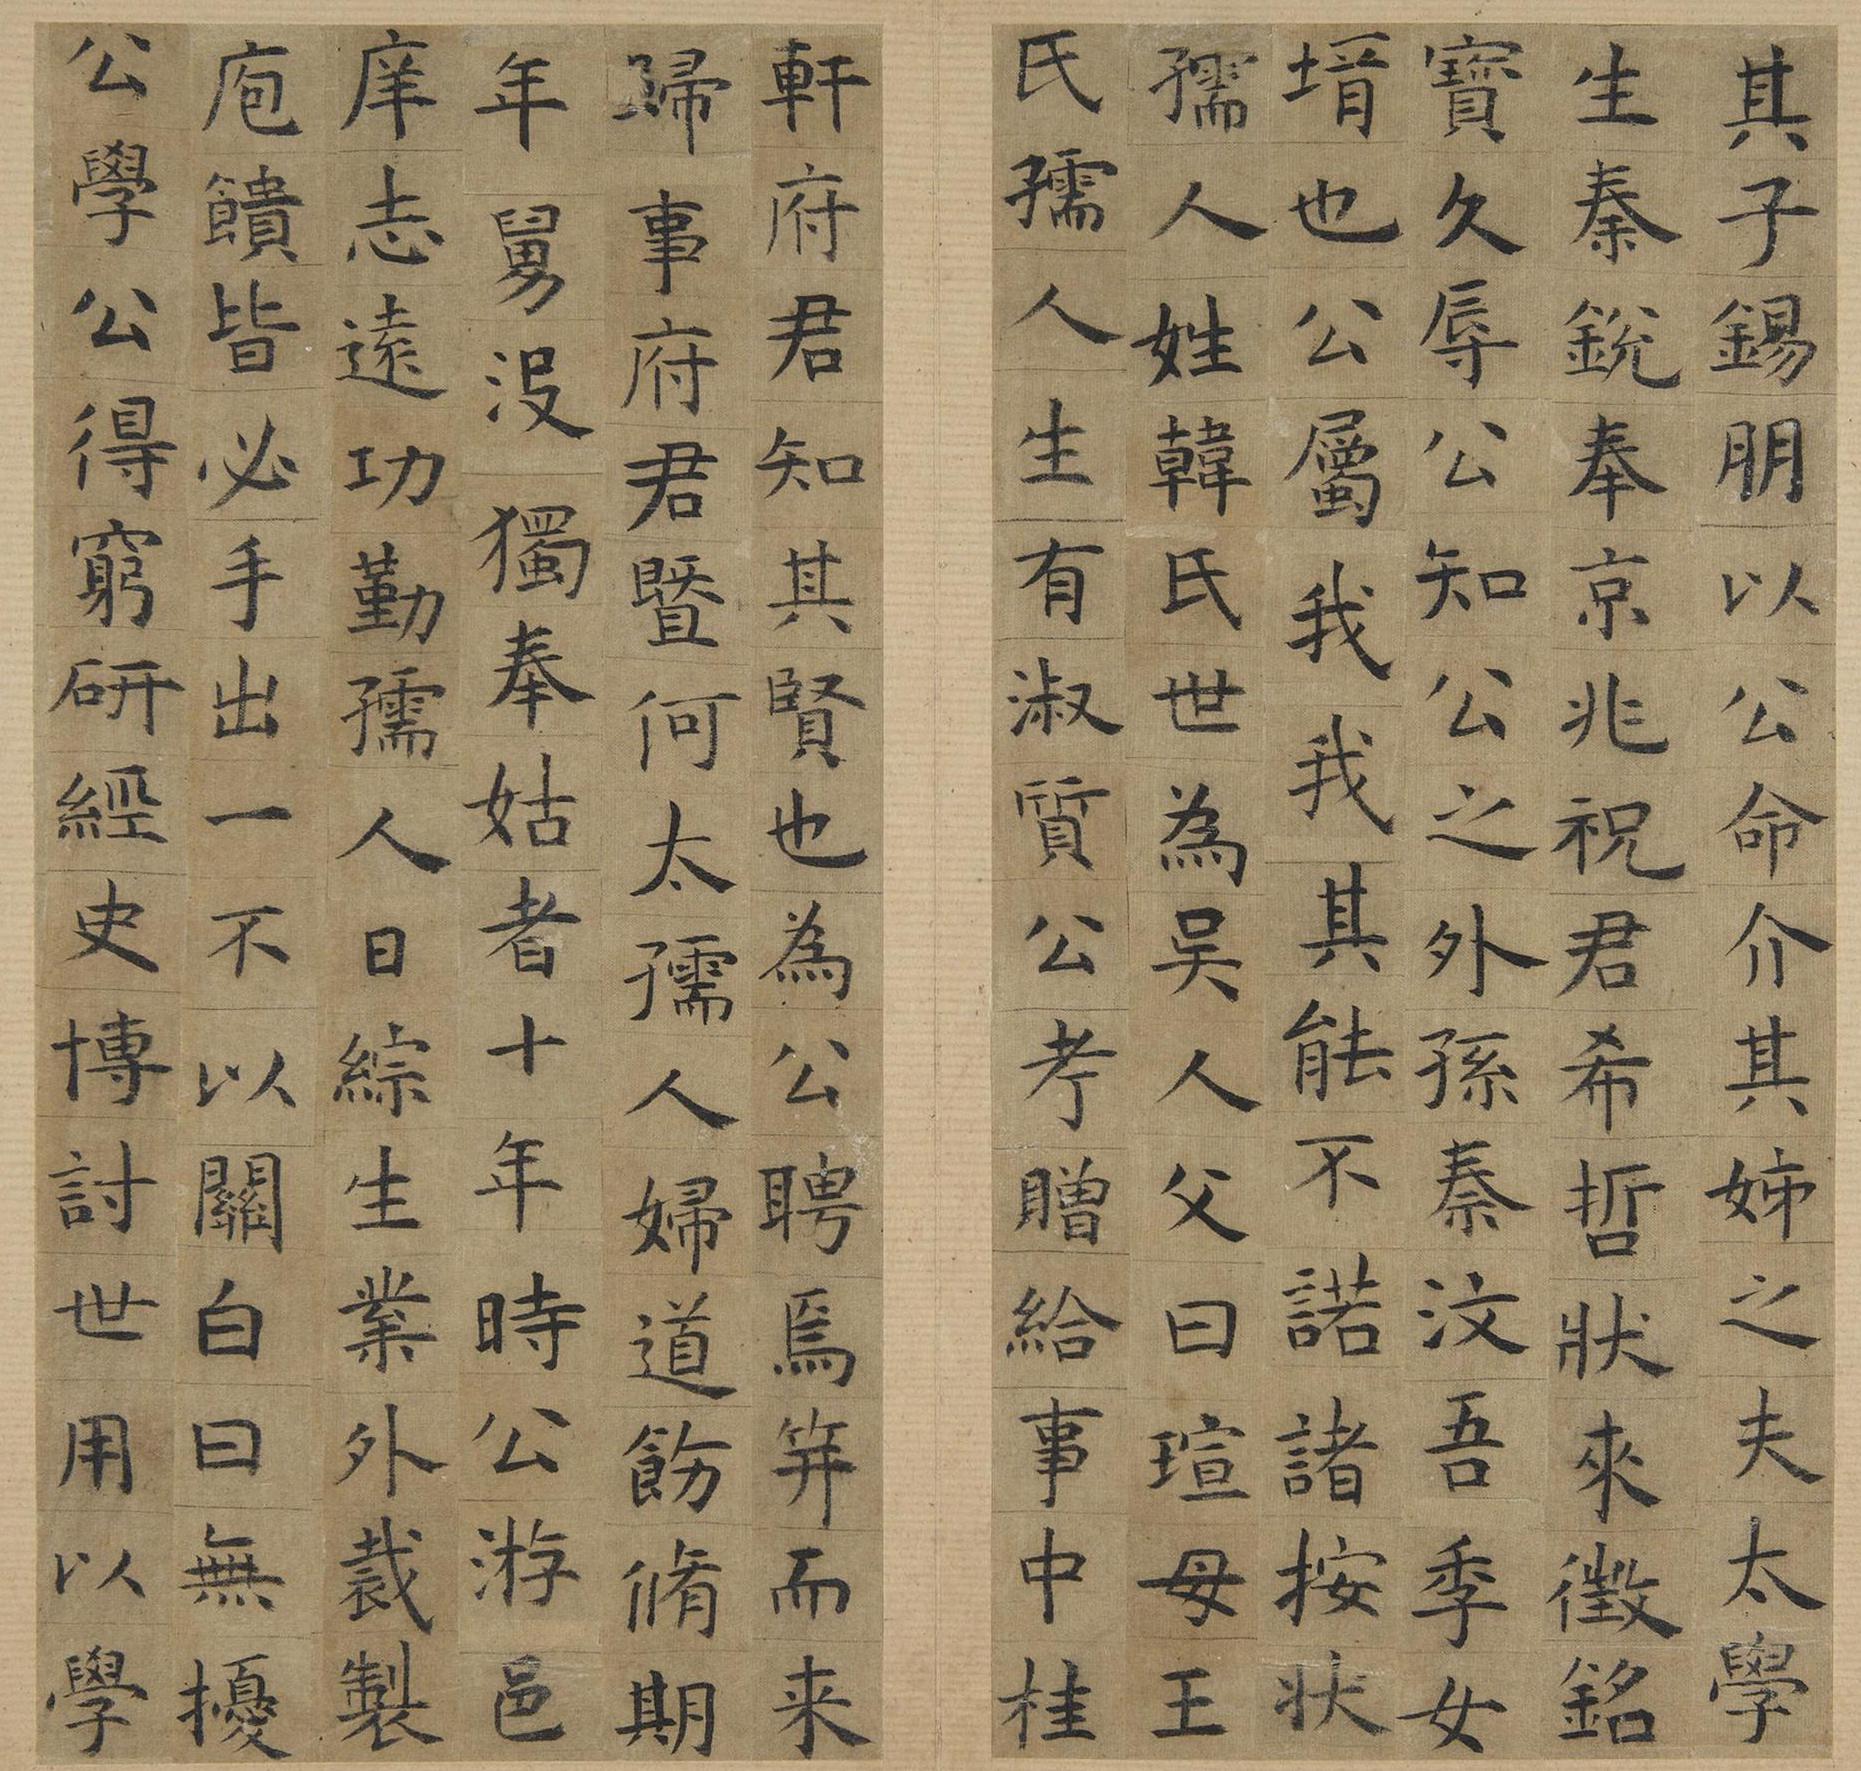 其子錫朋以公命介其姊之夫太學
生秦銳奉京兆祝君希哲狀來徵銘
寶久辱公知公之外孫秦汶吾季女
壻也公屬我我其能不諾諸按状
孺人姓韓氏世為吴人父曰瑄母王
氏孺人生有淑質公考贈給事中桂
軒府君知其賢也為公聘焉笄而来
歸事府君暨何太孺人婦道飭脩期
年舅没獨奉姑者十年時公游邑
庠志遠功勤孺人日綜生業外裁製
庖饋皆必手出一不以關白曰無擾
公學公得窮研經史博討世用以學